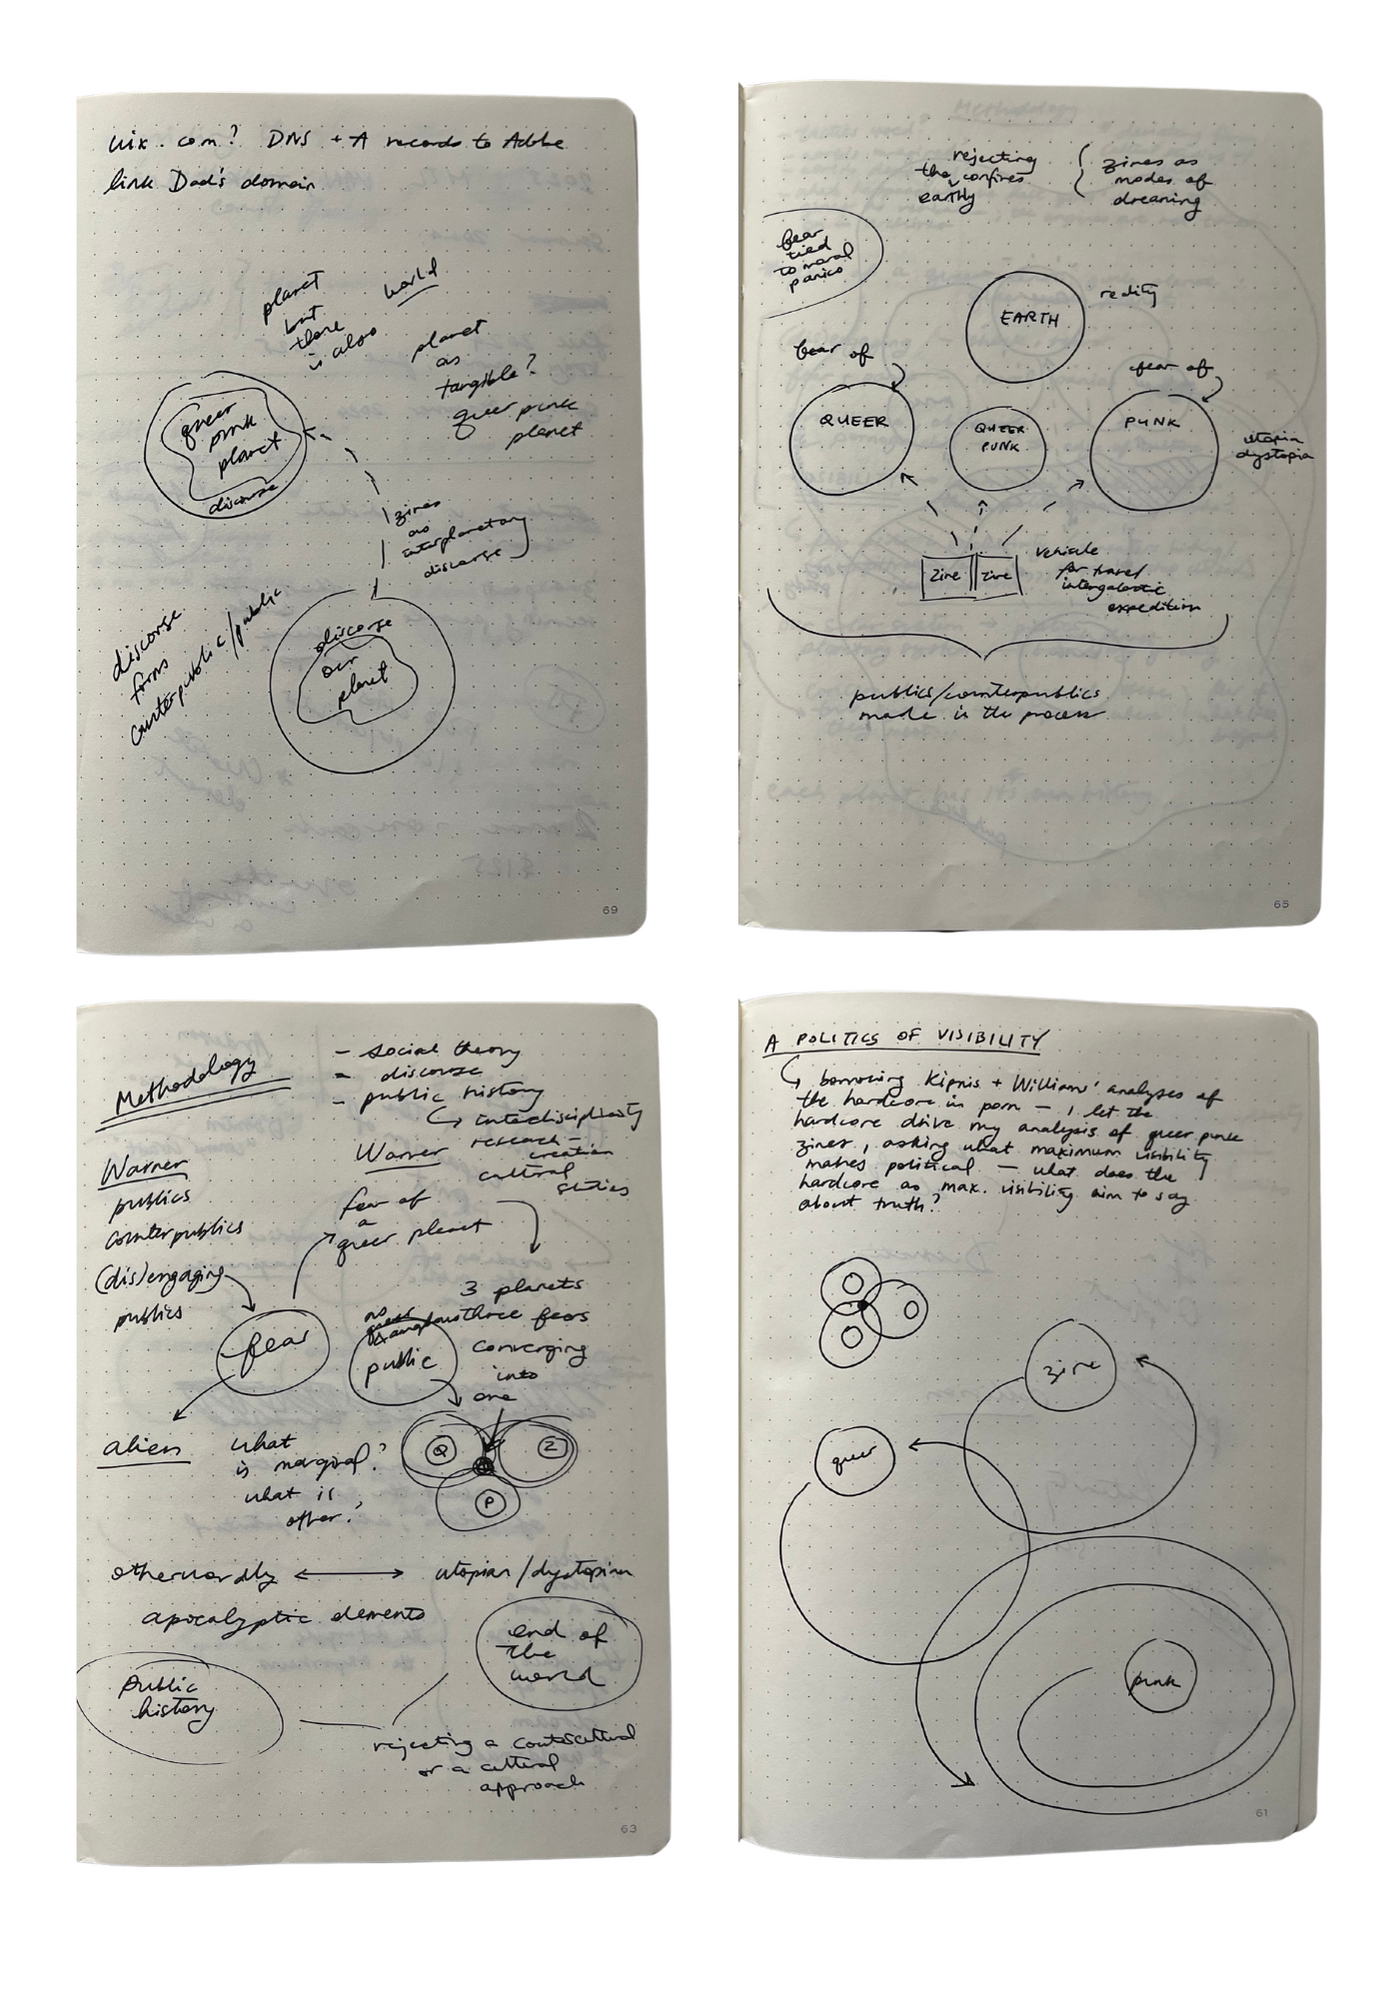 wix.com? DNS + A records to Adobe
link Dad's domain
planet
but
there
is also
world
planet
as
tangible?
queer punk
planet
queer
punk
planet
discorse
zines
as
interplanetary
discorse
discorse
from
counterpublic/public
discorse
our
planet
69
rejecting
the confines
earthly
zines as
modes of
dreaming
fear
tied
to moral
panics
EARTH
reality
fear of
fear of
QUEER
QUEER
PUNK
PUNK
utopia
dystopia
zine
zine
vehicle
for travel
intergalactic
expedition
publics/counterpublics
made in the process
65
Methodology
- social theory
- discorse
- public history
interdisciplinarity
research-
creation
cultural
studies
Warner
publics
counterpublics
(dis)engaging
publics
Warner
fear of
a
queer planet
fear
public
3 planets
three fears
converging
into
one
alien
what
is marginal?
what is
other?
Q
Z
P
otherwordly
utopian/dystopian
apocalyptic elements
end of
the
world
Public
history
rejecting a contercultural
or a cultural
approach
63
A POLITICS OF VISIBILITY
borrowing Kipnis + Williams' analyses of
the hardcore in porn — I let the
hardcore drive my analysis of queer punk
zines, asking what maximum visibility
makes political — what does the
hardcore as max. visibility aim to say
about truth?
zine
queer
punk
61